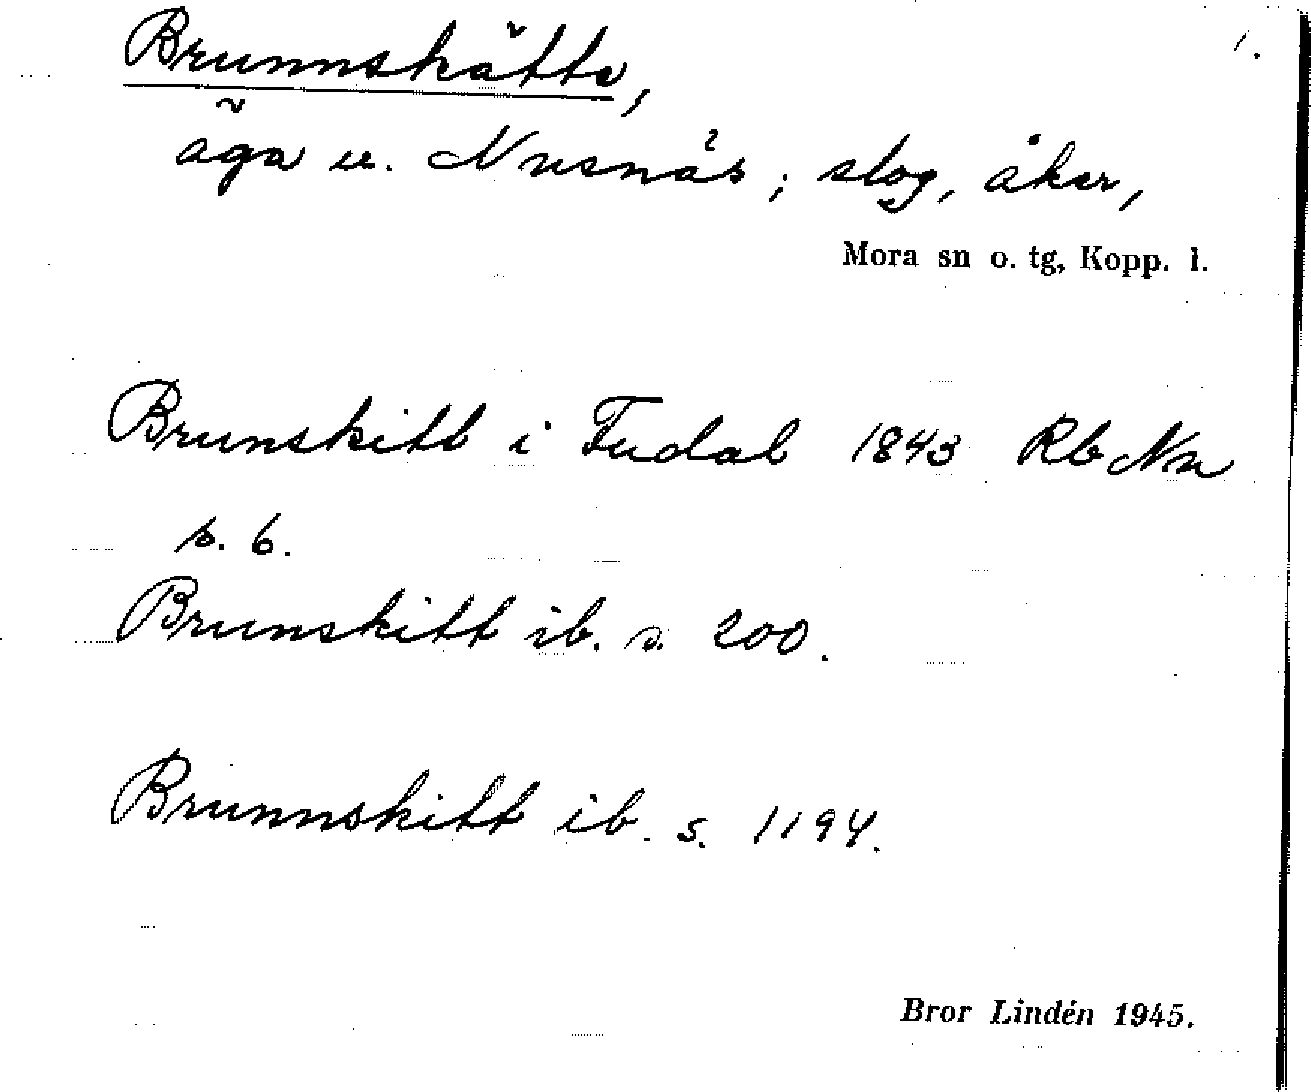 1.
Brunnskätte,
äga v. Nusnäs; slog, åker,
Mora sn o. tg, Kopp. l.
Brunskitt i Fudal 1843 Rb Nn
s. 6.
Brunskitt ib. s. 200.
Brunnskitt ib. s. 1194.
Bror Lindén 1945.